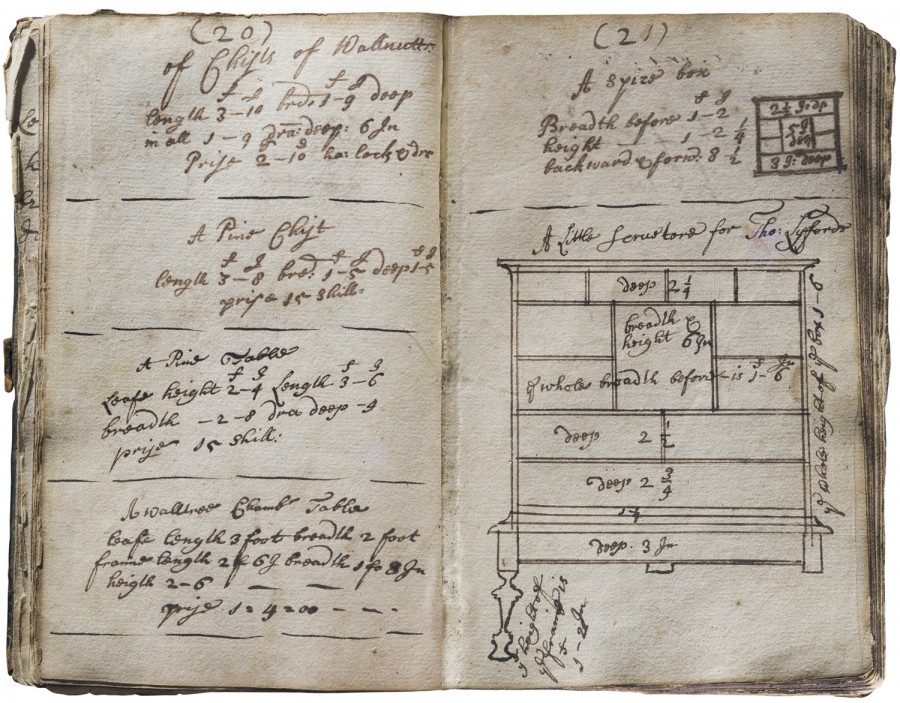 (20)
of Chists of Wallnutt:
f J f J
length 3-10 brd: 1-9 deep
in all 1-9 dra: deep: 6 Jn
Prise 2-10 ha: lock & dr
A Pine Chist
f J f J f J
length 3-8 bre: 1-5 deep 1-5
prise 15 shill:
A Pine Table
f J f J
Leafe height 2-4 Length 3-6
breadth -2-8 dra deep -4
prise 15 shill:
A walltree Chamb Table
leafe length 3 foot breadth 2 foot
frame length 2 f 6 J breadth 1 fo 8 Jn
heigth 2-6
prise 1=4=00 - - -
(21)
A Spise box
f J
Breadth before 1-2
height - - - 1-2 1/4
backward & forw: 8 1/2
2 1/4 J: dp
5 J
deep
3 J: deep
A Little Scruetore for Tho: Tyfords
deep 2 1/4
breadth &
height 6 Jn
f Jn
ye whole breadth before - is 1-6
deep 2 1/2
deep 2 3/4
1 1/4
deep. 3 Jn
ye whole height of ye box 1-6
ye height of
ye frame is
f
1-2 Jn